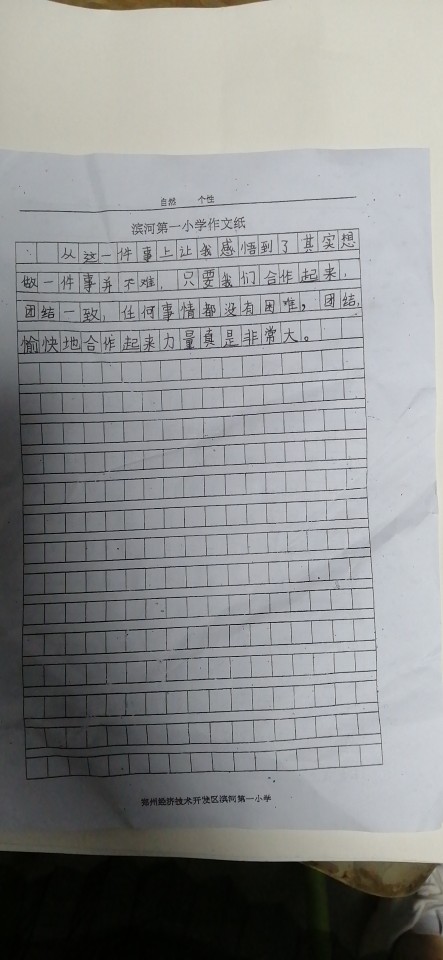 自然 个性
滨河第一小学作文纸
从这一件事上让我感悟到了其实想
做一件事并不难，只要我们合作起来，
团结一致，任何事情都没有困难，团结，
愉快地合作起来力量真是非常大。
郑州经济技术开发区滨河第一小学